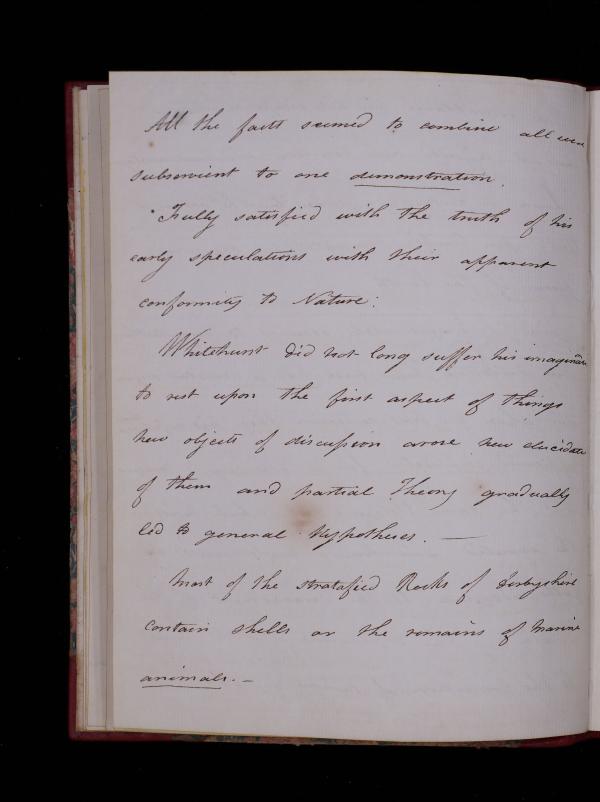 All the facts seemed to combine all were
subservient to one demonstration.
Fully satisfied with the truth of his
early speculations with their apparent
conformity to Nature:
Whitehurst did not long suffer his
to rest upon the first aspect of things
new objects of discussion arose new
of them and partial Theory gradually
led to general Hypotheses. —
Most of the stratafied Rocks of Derbyshire
contain shells or the remains of marine
animals. —